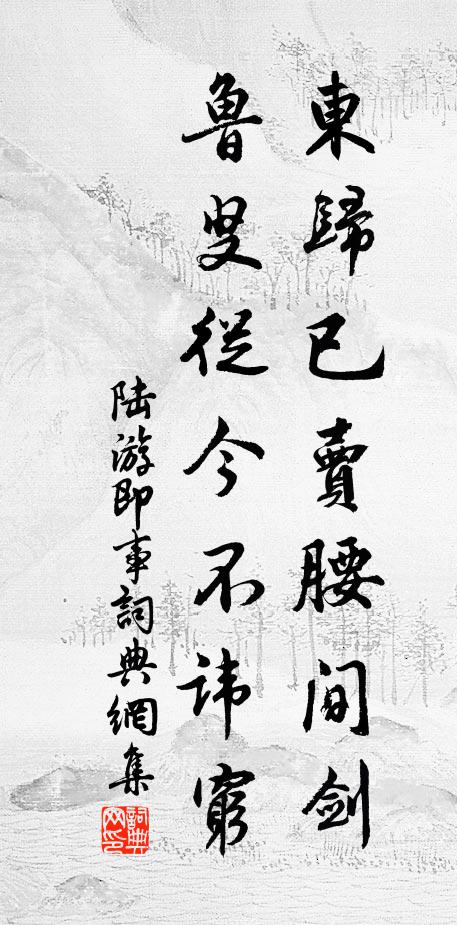 東歸已賣腰間劍
魯叟從今不讳窮
陆游即事詞典網集
詞典
网印